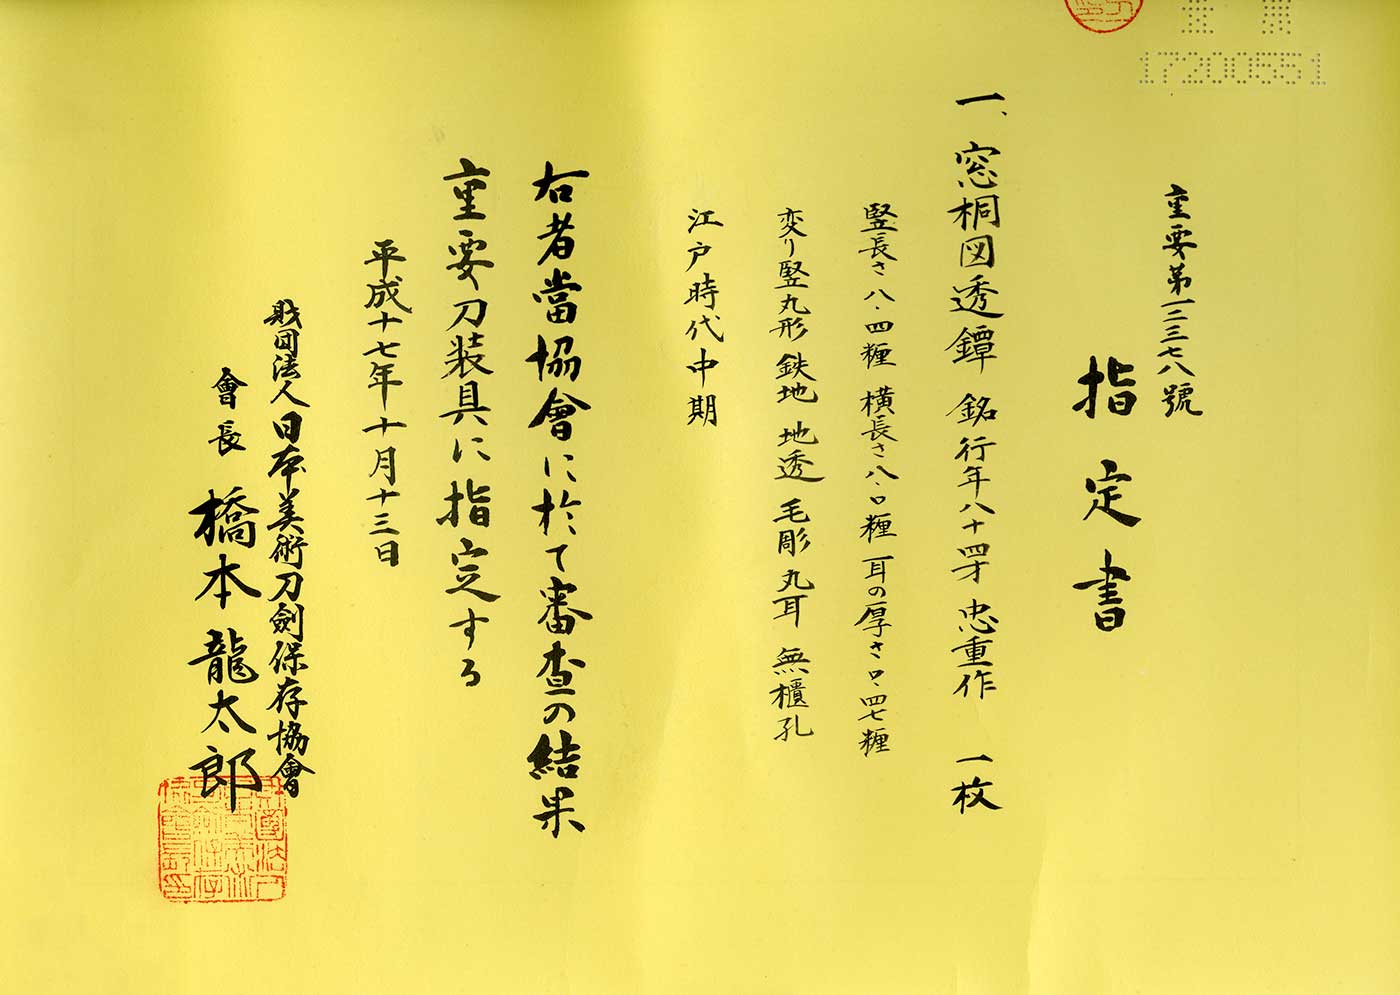 17200551
重要第一二三七八號
指定書
一、窓桐図透鐔 銘 行年八十四才 忠重作 一枚
竪長さ八・四糎 横長さ八・〇糎 耳の厚さ〇・四七糎
変り竪丸形 鉄地 地透 毛彫 丸耳 無櫃孔
江戸時代中期
右者當協會に於て審査の結果
重要刀装具に指定する
平成十七年十月十三日
財団法人日本美術刀劍保存協會
會長 橋本龍太郎